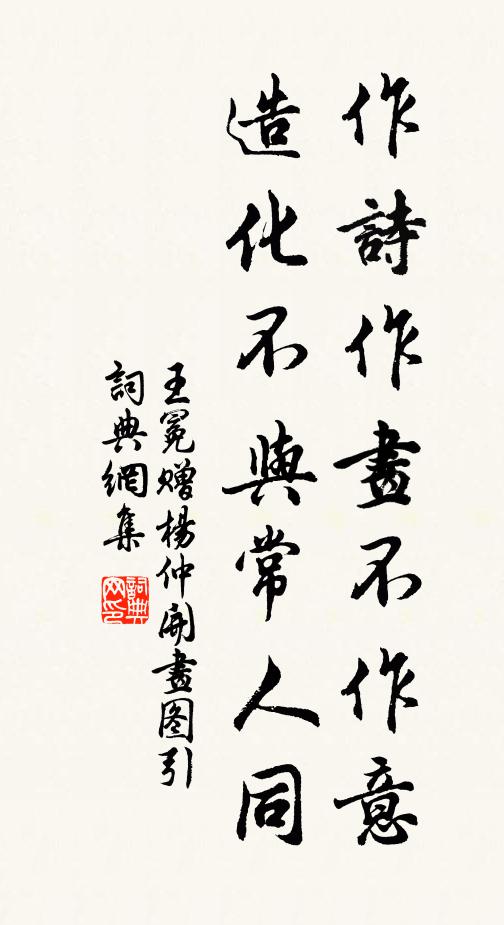 作詩作畫不作意
造化不與常人同
王冕贈楊仲開畫图引
詞典網集
詞典网印